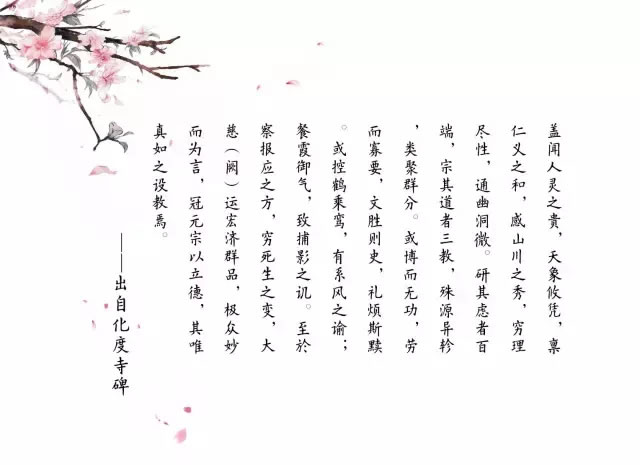 盖闻人灵之贵，天象攸凭，禀
仁义之和，感山川之秀，穷理
尽性，通幽洞微。研其虑者百
端，宗其道者三教，殊源异轸
，类聚群分。或博而无功，劳
而寡要，文胜则史，礼烦斯黩
。或控鹤乘鸾，有系风之谕；
餐霞御气，致捕影之讥。至於
察报应之方，穷死生之变，大
慈（阙）运宏济群品，极众妙
而为言，冠元宗以立德，其唯
真如之设教焉。
——出自化度寺碑